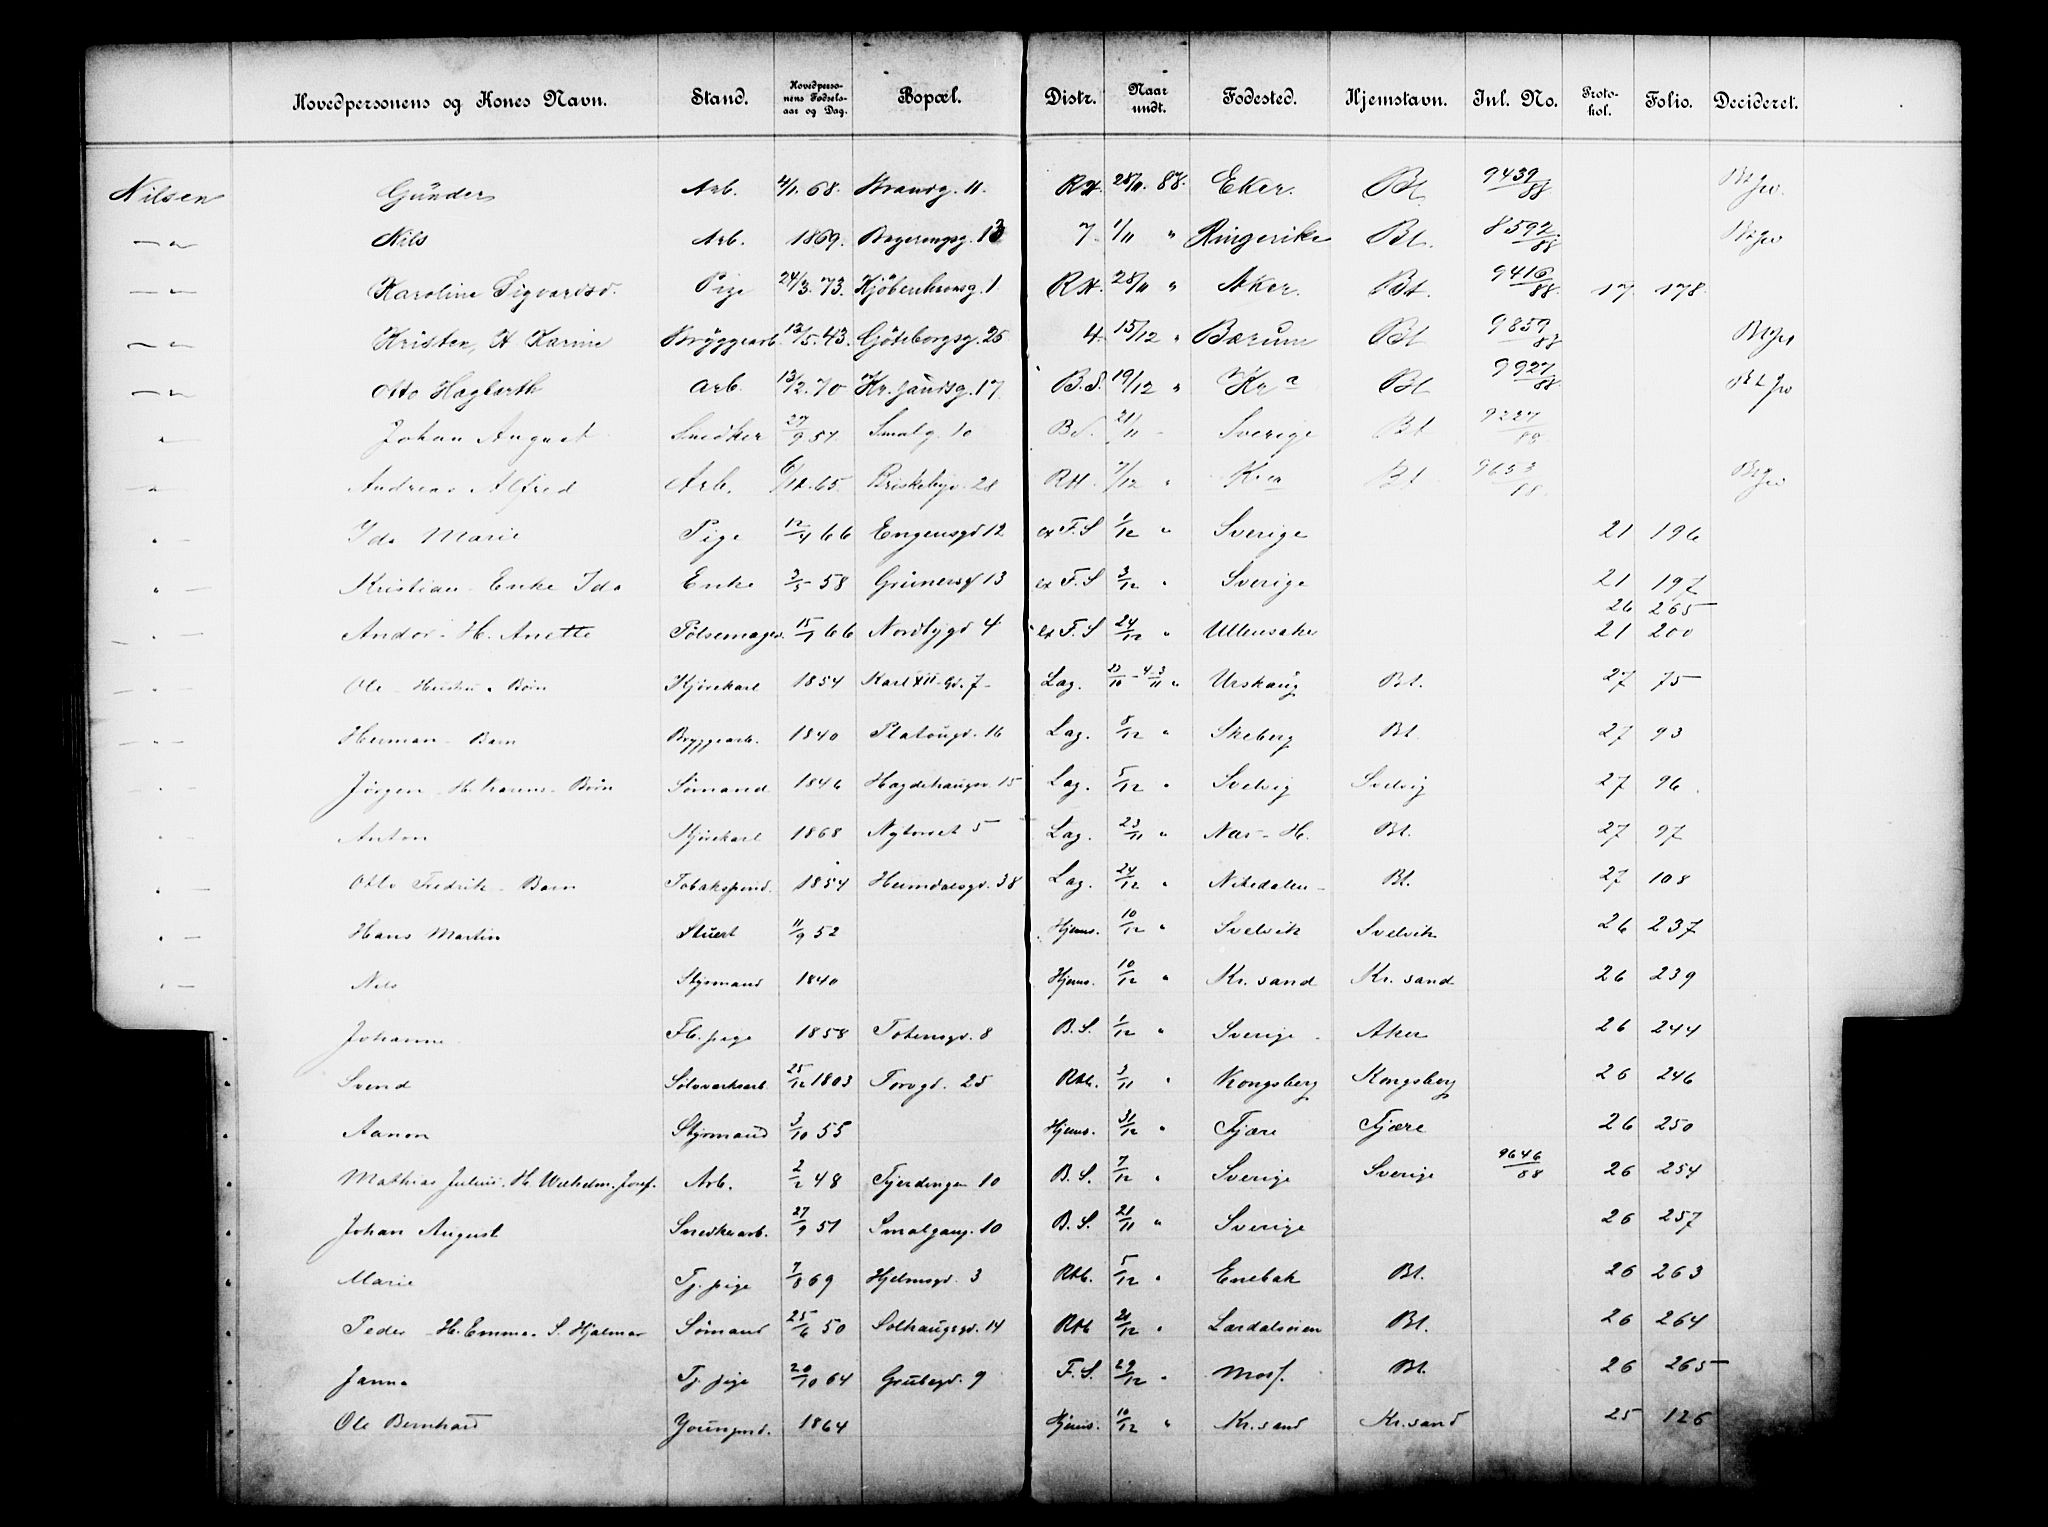 Hovedpersonens og Kones Navn. Stand. Hovedpersonens Fødselsaar og Dag. Bopæl. Distr. Naar undt. Fødested. Hjemstavn. Inl. No. Protokol. Folio. Decideret.
Nilsen Günder Arb. 4/1. 68. 11. RH. 28/11. 88. Eker. Bt. 9439/88
Nils Arb. 1869. 13 7. 1/11 " Ringerike Bt. 8592/88
Karoline Sigvartsd. Pige 24/3. 73. Kjöbenhavnsg. 1. RH. 28/11 " Aker. Bt. 9416/88. 17. 178.
Kristen, H Karine Bryggearb. 12/5. 43. Göteborgsg. 25 4. 15/12 " Bærum Bt 9859/88
Otto Hagbarth Arb. 13/12. 70 Kr. sandsg. 17 B.S. 19/12 " Kra Bt 9927/88.
Johan August Snedker 27/9 51 Smalg. 10 BS. 21/11 - Sverige Bt 9227/88
Andreas Alfred Arb. 6/12. 65. Briskebyv. 28 RH. 7/12 " Kra Bt 9653/88.
Ida Marie Pige 12/4 66 Engensgd 12 ex F.S 1/12 " Sverige 21 196
Kristian - Enke Ida Enke 3/5 58 Grünersgd 13 ex F.S 3/12 " Sverige 21 197
26 265
Andor - H. Anette Pølsemager 15/1 66 Nordbygd 4 ex F.S 24/12 " Ullensaker 21 200
Ole - Hustru & Børn Kjørekarl 1854 Karl XII - Gd. 7 - Lag. 23/10 - 4 3/11 " Urskaug Bt. 27 75
Herman - Barn Bryggearb. 1840 Platougd. 16 Lag. 8/12 " Skeberg Bt. 27 93
Jørgen - H. Karen - Børn Sømand 1846 Hægdehaugsv. 15 Lag. 5/12 " Svelvig Svelvig 27 96
Anton Kjørekarl 1868 Nytorvet 5 Lag. 23/11 " Næs - H. Bt. 27 97
Otto Fredrik - Barn Tobakspind. 1854 Heimdalsgd. 38 Lag. 24/12 " Nitedalen - Bt. 27 108
Hans Martin Stuert 11/9 52 Hjems. 10/12 " Svelvik Svelvik 26 237
Nils Styrmand 1840 Hjems. 10/12 " Kr. sand Kr. sand 26 239
Johanne Fb. pige 1858 Totensgd. 8 B.S. 1/12 " Sverige Aker 26 244
Svend Sølvverksarb. 25/12 1803 Torvgd. 25 RHb. 3/11 " Kongsberg Kongsberg 26 246
Aanon Styrmand 3/10 55 Hjems. 31/12 " Fjære Fjære 26 250
Mathias Julius. H. Wilhelm. Josf. Arb. 2/2 48 Fjerdingen 10 B.S. 7/12 " Sverige Sverige 9646/88 26 254
Johan August Snedkerarb. 27/9 51 Smalgang. 10 B.S. 21/11 " Sverige 26 257
Marie Tj. pige 7/8 69 Hjelmsgd. 3 RHb. 5/12 " Enebak Bt. 26 263
Peder - H. Emma S. Hjalmar Sømand 25/6 50 Solhaugsgd. 14 RHb 21/12 " Lærdalsøren Bt. 26 264
Janna Tj. pige 20/10 64 Grubegd. 9 F.S. 29/12 " Moss. Bt. 26 265
Ole Bernhard Joungmd. 1864 Hjems. 10/12 " Kr. sand Kr. sand 25 126